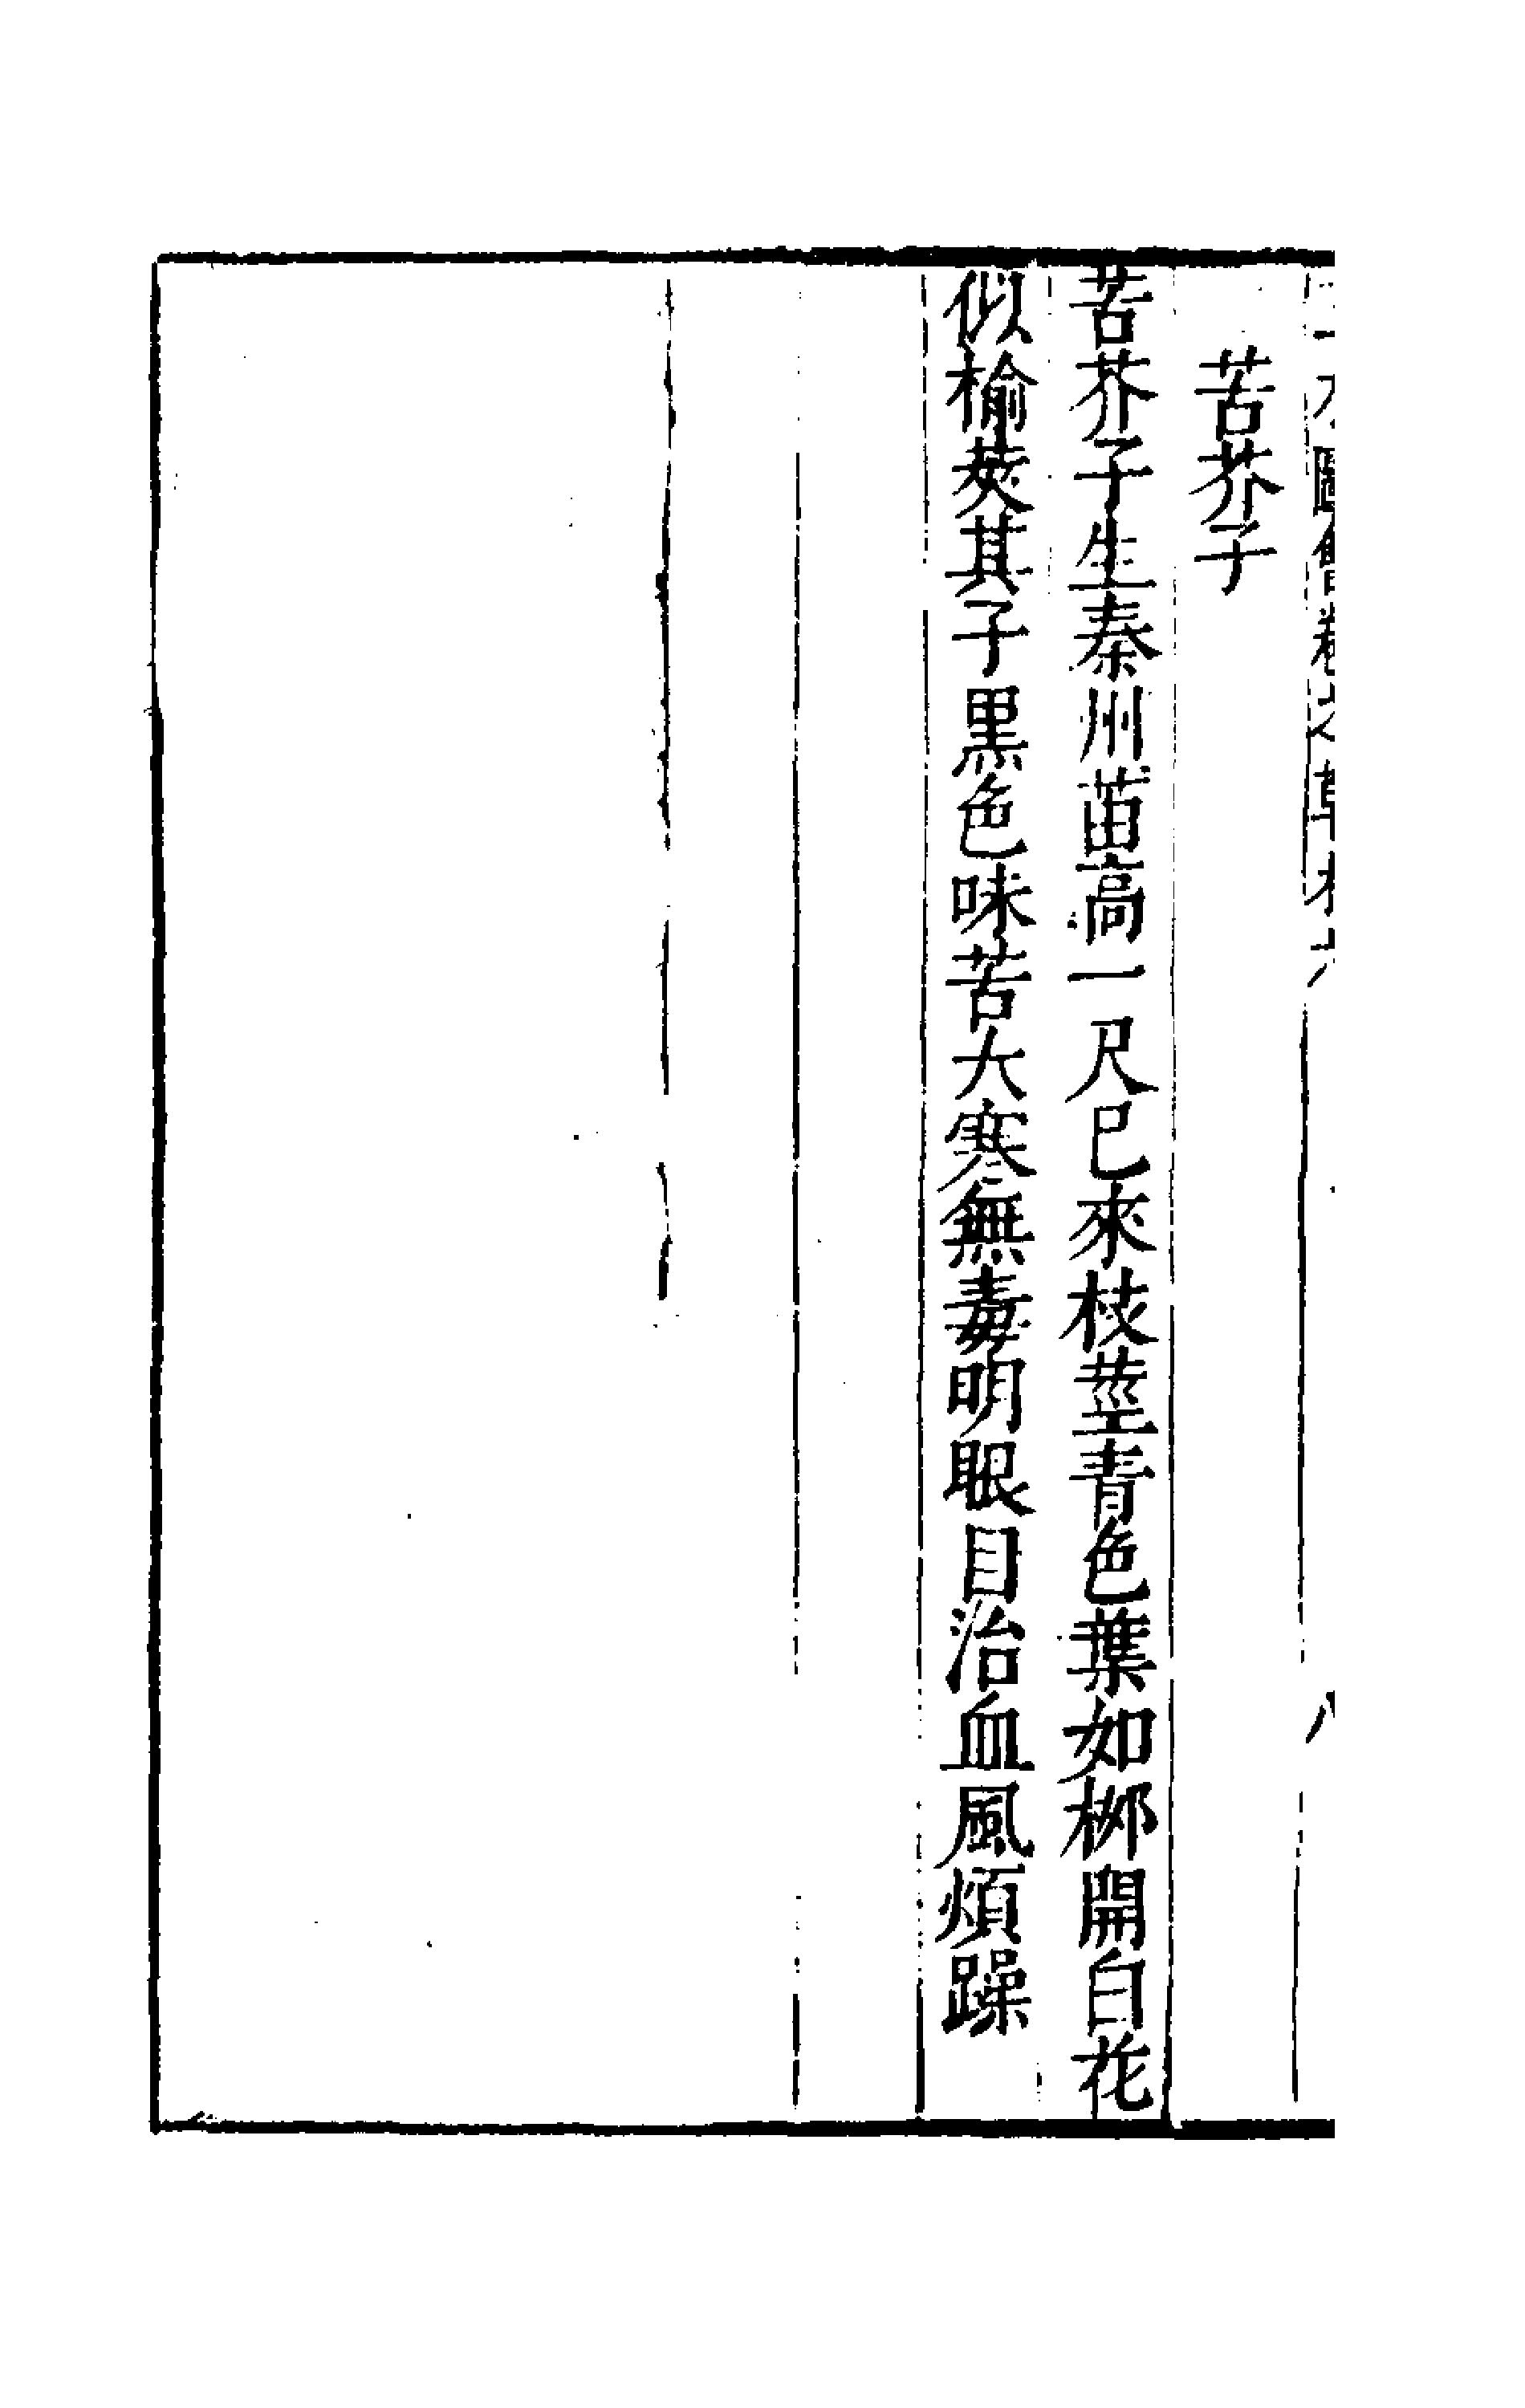 苦芥子
苦芥子生秦州苗高一尺已來枝莖青色葉如桞開白花
似榆莢其子黒色味苦大寒無毒明眼目治血風煩躁